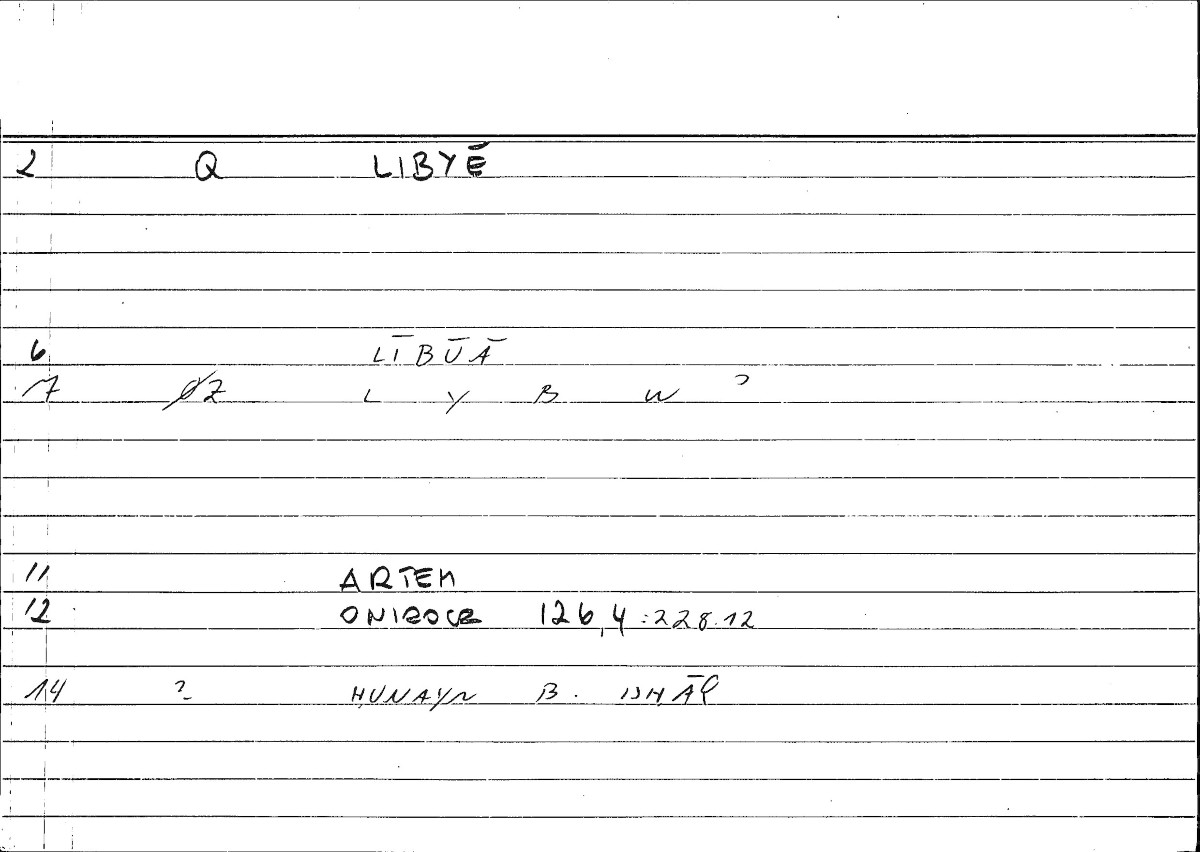 2 Q LIBYĒ
6 LĪBŪĀ
7 ØZ L Y B W ʾ
11 ARTEM
12 ONIROCR 126,4:228.12
14 ? ḤUNAYN B. ISḤĀQ